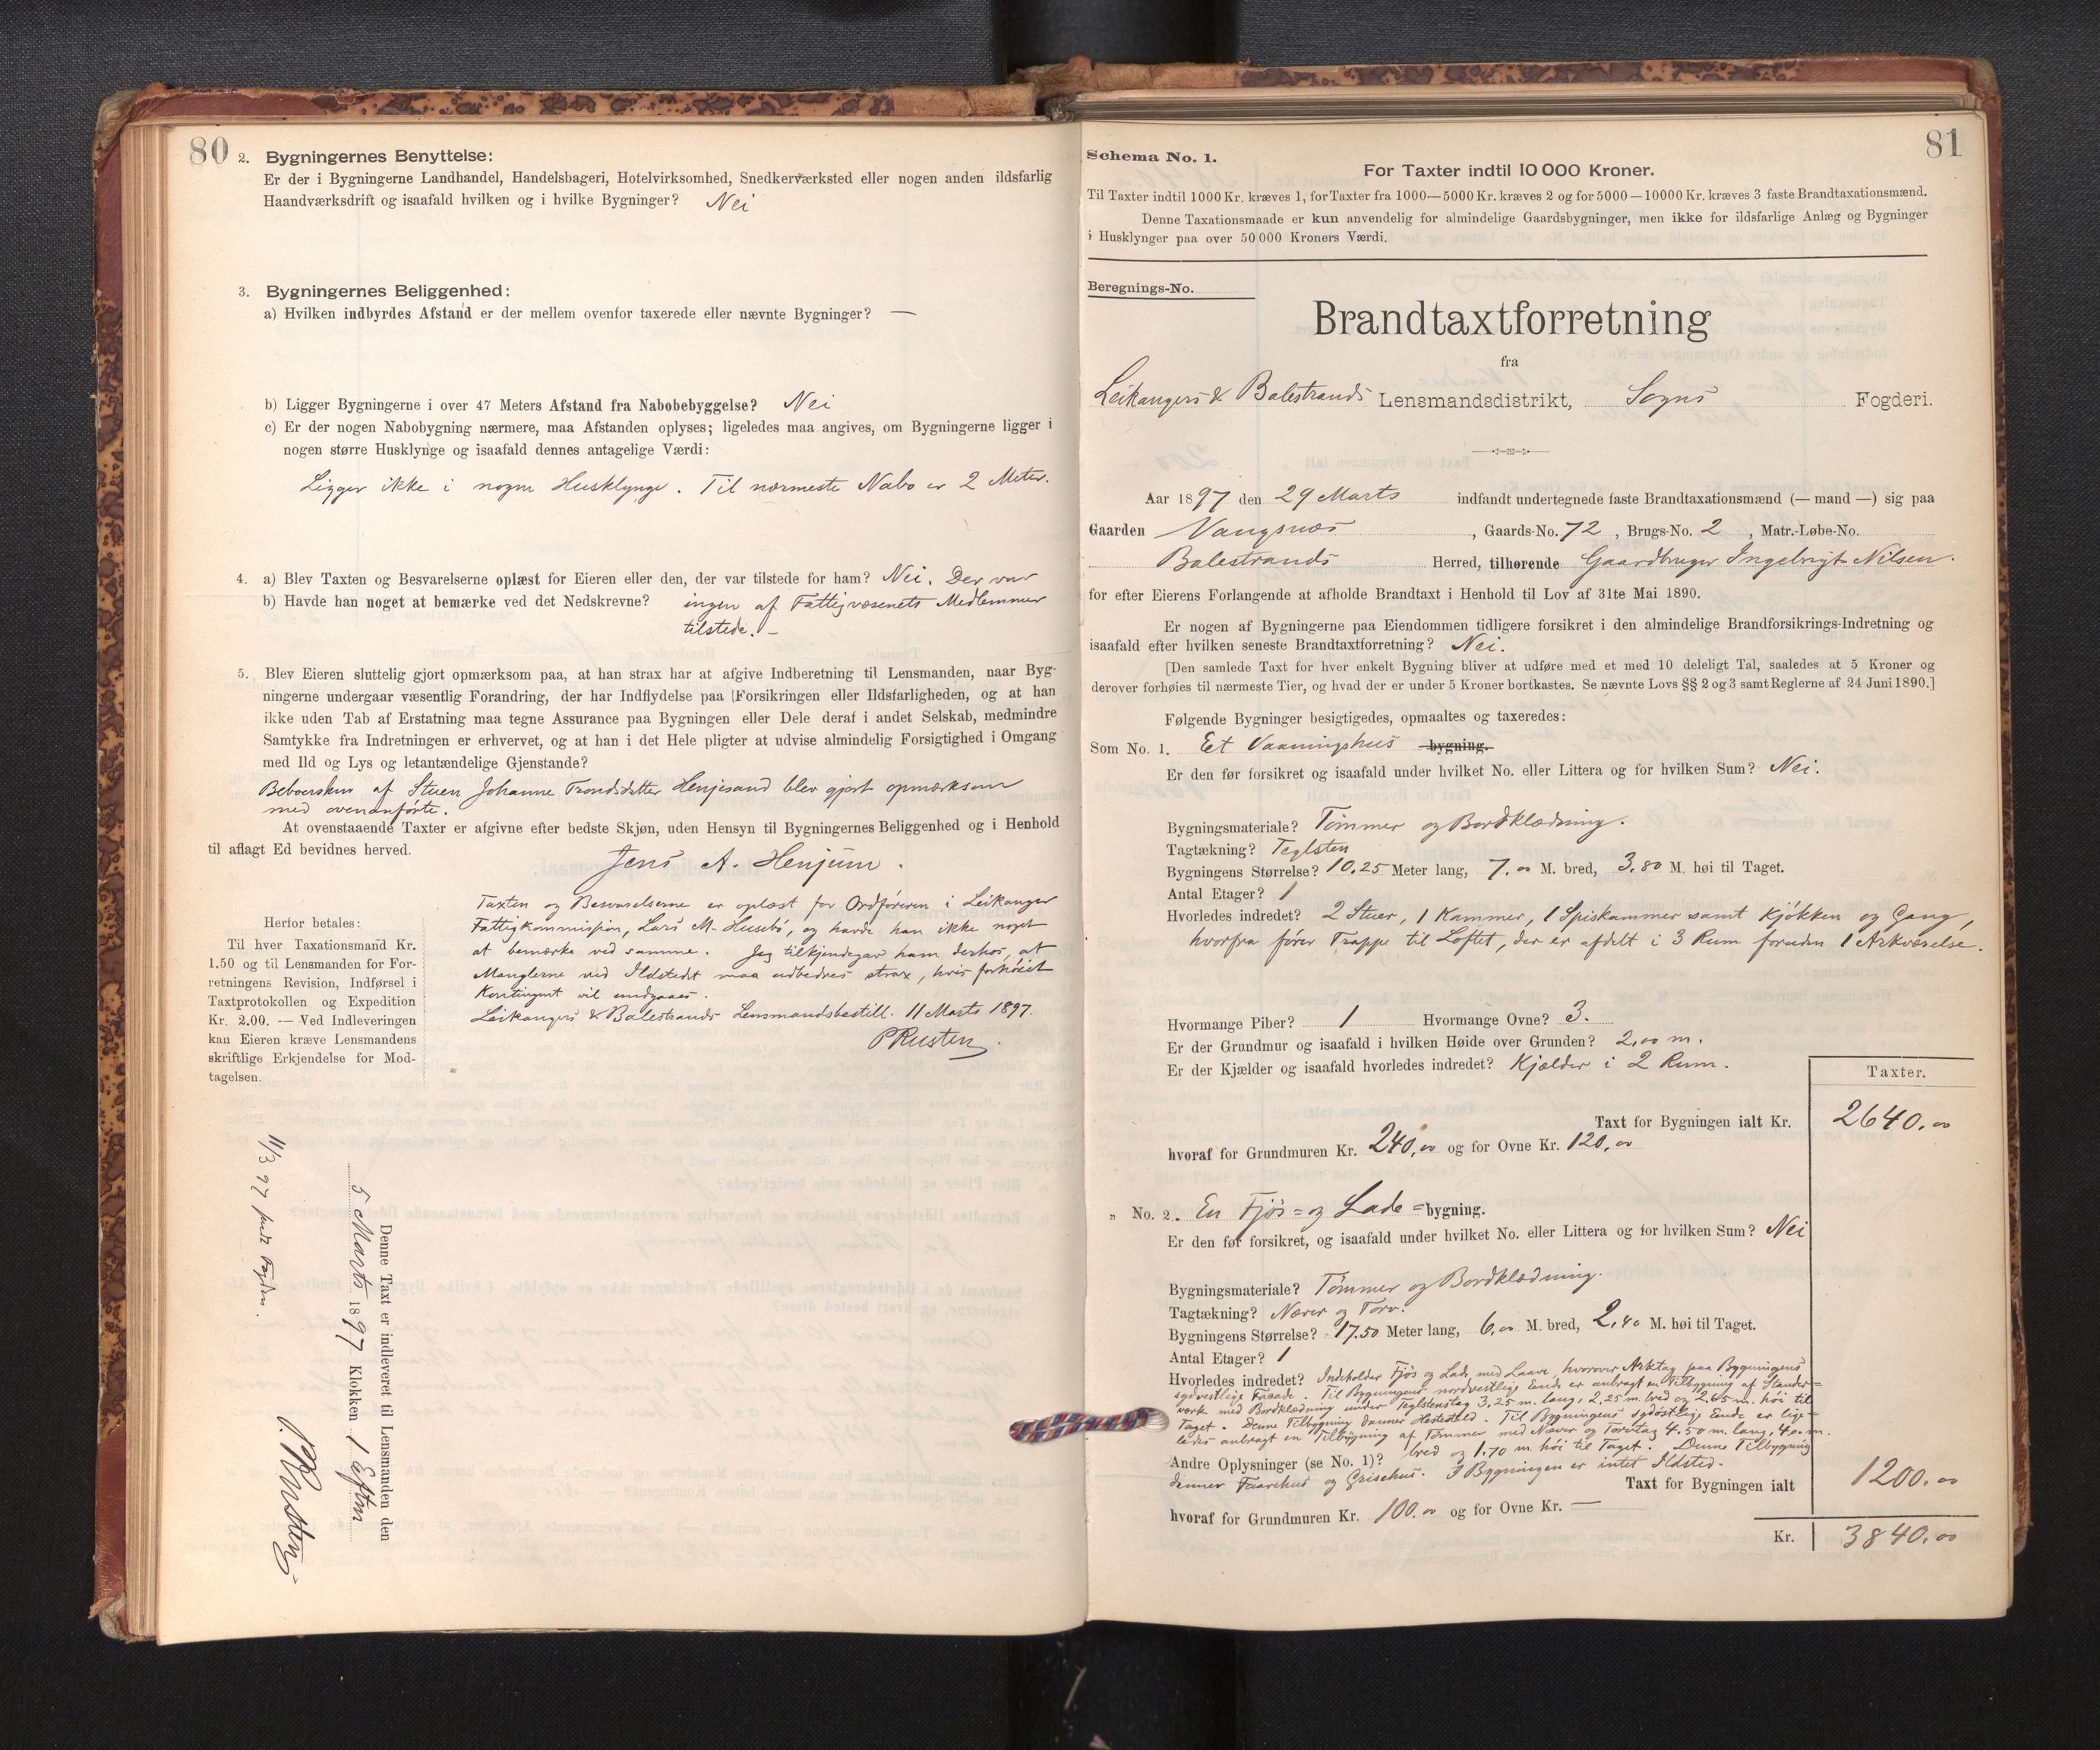 80
2. Bygningernes Benyttelse:
Er der i Bygningerne Landhandel, Handelsbageri, Hotelvirksomhed, Snedkerværksted eller nogen anden ildsfarlig
Haandværksdrift og isaafald hvilken og i hvilke Bygninger? Nei
3. Bygningernes Beliggenhed:
a) Hvilken indbyrdes Afstand er der mellem ovenfor taxerede eller nævnte Bygninger? —
b) Ligger Bygningerne i over 47 Meters Afstand fra Nabobebyggelse? Nei
c) Er der nogen Nabobygning nærmere, maa Afstanden oplyses; ligeledes maa angives, om Bygningerne ligger i
nogen større Husklynge og isaafald dennes antagelige Værdi:
Ligger ikke i nogen Husklynge. Til nærmeste Nabo er 2 Meter.
4. a) Blev Taxten og Besvarelserne oplæst for Eieren eller den, der var tilstede for ham? Nei. Der var
b) Havde han noget at bemærke ved det Nedskrevne? ingen af Fattigvæsenets Medlemmer
tilstede. —
5. Blev Eieren sluttelig gjort opmærksom paa, at han strax har at afgive Indberetning til Lensmanden, naar Byg-
ningerne undergaar væsentlig Forandring, der har Indflydelse paa Forsikringen eller Ildsfarligheden, og at han
ikke uden Tab af Erstatning maa tegne Assurance paa Bygningen eller Dele deraf i andet Selskab, medmindre
Samtykke fra Indretningen er erhvervet, og at han i det Hele pligter at udvise almindelig Forsigtighed i Omgang
med Ild og Lys og letantændelige Gjenstande?
Beboersken af Stuen Johanne Trondsdatter Henjesand blev gjort opmærksom
med ovenanførte.
At ovenstaaende Taxter er afgivne efter bedste Skjøn, uden Hensyn til Bygningernes Beliggenhed og i Henhold
til aflagt Ed bevidnes herved.
Jens A. Henjum.
Taxten og Besvarelserne er oplæst for Ordføreren i Leikanger
Fattigkommission, Lars M. Husebø, og havde han ikke noget
at bemærke ved samme. Jeg tilkjendegav ham derhos, at
Manglerne ved Ildstedet maa udbedres strax, hvis forhøiet
Kontingent vil undgaaes.
Leikangers & Balestrands Lensmandsbestill. 11 Marts 1897.
P Rusten
Herfor betales:
Til hver Taxationsmand Kr.
1.50 og til Lensmanden for For-
retningens Revision, Indførsel i
Taxtprotokollen og Expedition
Kr. 2.00. — Ved Indleveringen
kan Eieren kræve Lensmandens
skriftlige Erkjendelse for Mod-
tagelsen.
Denne Taxt er indleveret til Lensmanden den
5 Marts 1897 Klokken 1 Eftm
P. Rusten
11/3 97 sendt Fogden.
81
Schema No. 1.
For Taxter indtil 10 000 Kroner.
Til Taxter indtil 1000 Kr. kræves 1, for Taxter fra 1000—5000 Kr. kræves 2 og for 5000—10000 Kr. kræves 3 faste Brandtaxationsmænd.
Denne Taxationsmaade er kun anvendelig for almindelige Gaardsbygninger, men ikke for ildsfarlige Anlæg og Bygninger
i Husklynger paa over 50 000 Kroners Værdi.
Beregnings-No.
Brandtaxtforretning
fra
Leikangers & Balestrands Lensmandsdistrikt, Sogns Fogderi.
Aar 1897 den 29 Marts indfandt undertegnede faste Brandtaxationsmænd (— mand —) sig paa
Gaarden Vangsnæs, Gaards-No. 72, Brugs-No. 2, Matr.-Løbe-No.
Balestrands Herred, tilhørende Gaardbruger Ingebrigt Nilsen.
for efter Eierens Forlangende at afholde Brandtaxt i Henhold til Lov af 31te Mai 1890.
Er nogen af Bygningerne paa Eiendommen tidligere forsikret i den almindelige Brandforsikrings-Indretning og
isaafald efter hvilken seneste Brandtaxtforretning? Nei.
[Den samlede Taxt for hver enkelt Bygning bliver at udføre med et med 10 deleligt Tal, saaledes at 5 Kroner og
derover forhøies til nærmeste Tier, og hvad der er under 5 Kroner bortkastes. Se nævnte Lovs §§ 2 og 3 samt Reglerne af 24 Juni 1890.]
Følgende Bygninger besigtigedes, opmaaltes og taxeredes:
Som No. 1. Et Vaaningshus bygning.
Er den før forsikret og isaafald under hvilket No. eller Littera og for hvilken Sum? Nei.
Bygningsmateriale? Tømmer og Bordklædning.
Tagtækning? Teglsten
Bygningens Størrelse? 10.25 Meter lang, 7.00 M. bred, 3.80 M. høi til Taget.
Antal Etager? 1
Hvorledes indredet? 2 Stuer, 1 Kammer, 1 Spiskammer samt Kjøkken og Gang,
hvorfra fører Trappe til Loftet, der er afdelt i 3 Rum foruden 1 Arkværelse.
Hvormange Piber? 1 Hvormange Ovne? 3.
Er der Grundmur og isaafald i hvilken Høide over Grunden? 2,00 m.
Er der Kjælder og isaafald hvorledes indredet? Kjælder i 2 Rum.
Taxter.
Taxt for Bygningen ialt Kr. 2640.00
hvoraf for Grundmuren Kr. 240,00 og for Ovne Kr. 120,00
„ No. 2. En Fjøs= og Lade =bygning.
Er den før forsikret, og isaafald under hvilket No. eller Littera og for hvilken Sum? Nei
Bygningsmateriale? Tømmer og Bordklædning.
Tagtækning? Næver og Torv.
Bygningens Størrelse? 17.50 Meter lang, 6,00 M. bred, 2,40 M. høi til Taget.
Antal Etager? 1
Hvorledes indredet? Indeholder Fjøs og Lade med Laave, hvorover Arktag paa Bygningens
sydvestlige Facade. Til Bygningens nordvestlige Ende er anbragt en Tilbygning af Stender=
værk med Bordklædning under Teglstenstag 3,25 m. lang, 2,25 m. bred og 2,65 m. høi til
Taget. Denne Tilbygning danner Hestestald. Til Bygningens sydøstlige Ende er lige=
ledes anbragt en Tilbygning af Tømmer med Næver og Torvtag 4.50 m. lang, 4.00 m.
bred og 1.70 m. høi til Taget. Denne Tilbygning
Andre Oplysninger (se No. 1)?
danner Faarehus og Grisehus. I Bygningen er intet Ildsted.
Taxt for Bygningen ialt 1200.00
hvoraf for Grundmuren Kr. 100.00 og for Ovne Kr. —
Kr. 3840.00